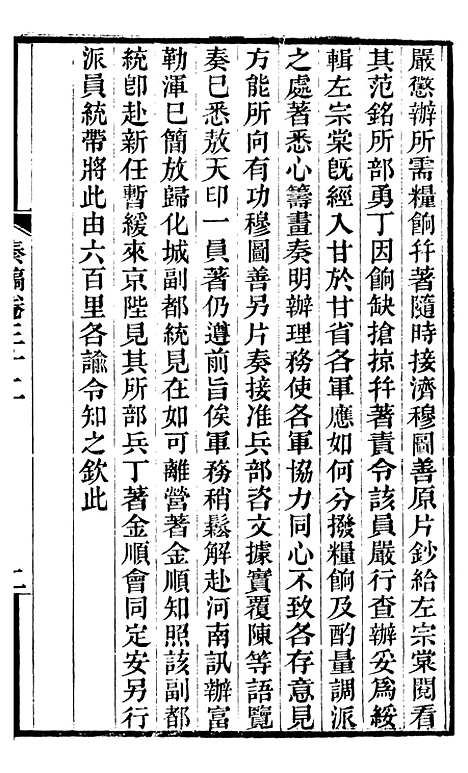 嚴懲辦所需糧餉幷著隨時接濟穆圖善原片鈔給左宗棠閱看
其范銘所部勇丁因餉缺搶掠幷著責令該員嚴行查辦妥爲綏
輯左宗棠旣經入甘於甘省各軍應如何分撥糧餉及酌量調派
之處著悉心籌畫奏明辦理務使各軍協力同心不致各存意見
方能所向有功穆圖善另片奏接准兵部咨文據實覆陳等語覽
奏巳悉敖天印一員著仍遵前旨俟軍務稍鬆解赴河南訊辦富
勒渾巳簡放歸化城副都統見在如可離營著金順知照該副都
統卽赴新任暫緩來京陛見其所部兵丁著金順會同定安另行
派員統帶將此由六百里各諭令知之欽此
奏稿卷三十二
二